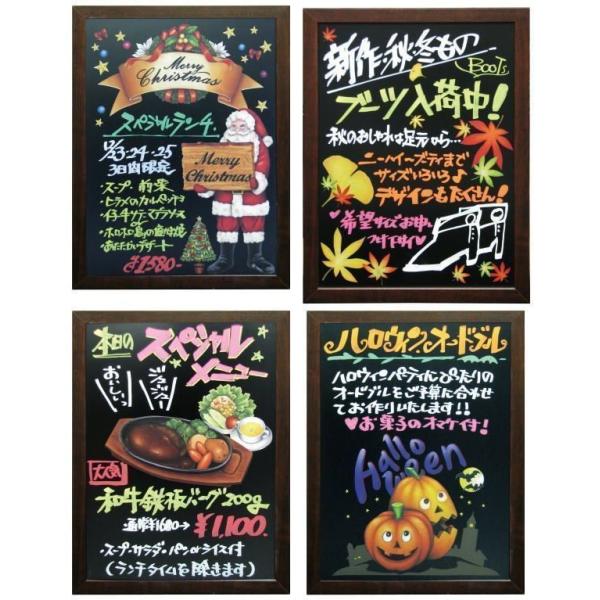 Merry
Christmas
スペシャルランチ
12/23・24・25
3日間限定
Merry
Christmas
・スープ 前菜
・ヒラメのカルパッチョ
・仔牛サーモブラゾーズ
or
・ホロホロ鳥の香草焼
・あたたかいデザート
¥1580-
新作・秋・冬もの
Boots
ブーツ入荷中!
秋のおしゃれは足元から…
ニーハイ〜ブーティまで
サイズいろいろ♪
デザインもたくさん!
♥希望サイズお申し
つけ下サイ♥
本日の
スペシャル
メニュー
おいしいっ
ジュージュー
大人気
和牛鉄板バーグ200g
通常¥1680→¥1,100.
・スープ・サラダ・パンorライス付
(ランチタイムを除きます)
ハロウィン・オードブル
ハロウィンパーティにぴったりの
オードブルをご予算に合わせ
てお作りいたします!!
♥お菓子のオマケ付!
Hallo
ween